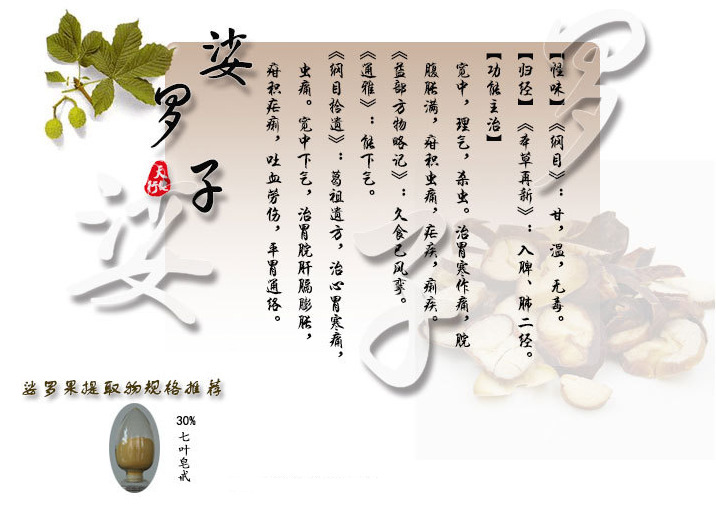 娑罗子
天行健
【性味】《纲目》：甘，温，无毒。
【归经】《本草再新》：入脾、肺二经。
【功能主治】
宽中，理气，杀虫。治胃寒作痛，脘
腹胀满，疳积虫痛，疟疾，痢疾。
《益部方物略记》：久食已风挛。
《通雅》：能下气。
《纲目拾遗》：葛祖遗方，治心胃寒痛，
虫痛。宽中下气，治胃脘肝膈膨胀，
疳积疟痢，吐血劳伤，平胃通络。
娑罗子
娑罗果提取物规格推荐
30%
七叶皂甙